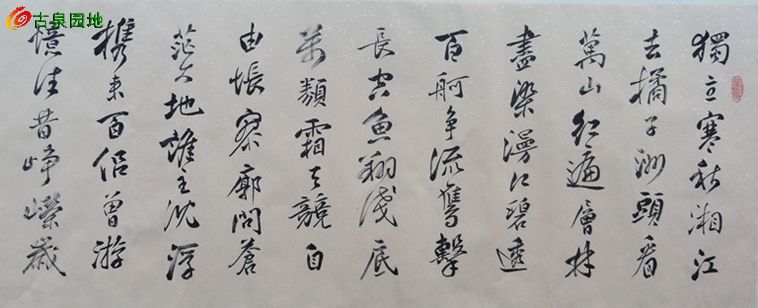 古泉园地
獨立寒秋湘江
去橘子洲頭看
萬山红遍層林
盡染漫江碧透
百舸争流鹰擊
長空魚翔浅底
萬類霜天競自
由悵寥廓問蒼
茫大地誰主沈浮
携來百侣曾游
憶往昔崢嶸歲